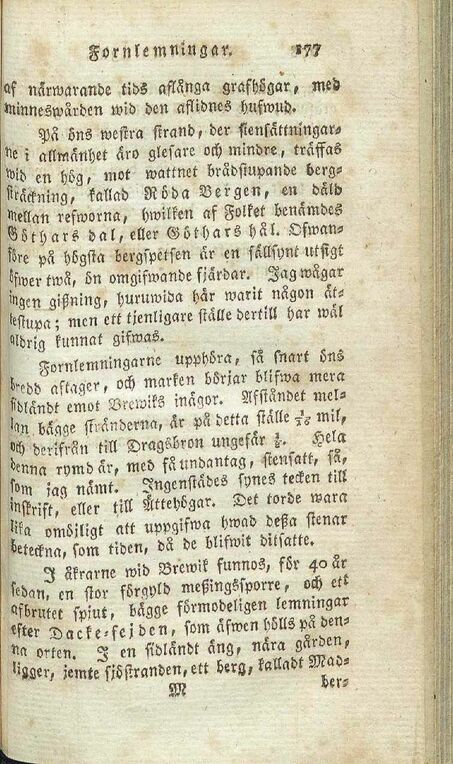 Fornlemningar. 177
af närwarande tids aflånga grafhögar, med
minneswården wid den aflidnes hufwud.
På öns westra strand, der stensättningar-
ne i allmänhet äro glesare och mindre, träffas
wid en hög, mot wattnet brådstupande berg-
sträckning, kallad Röda Bergen, en däld
mellan refworna, hwilken af Folket benämdes
Göthars dal, eller Göthars hål. Ofwan-
före på högsta bergspetsen är en sällsynt utsigt
öfwer twå, ön omgifwande fjärdar. Jag wågar
ingen gißning, huruwida här warit någon ät-
testupa; men ett tjenligare ställe dertill har wäl
aldrig kunnat gifwas.
Fornlemningarne upphöra, så snart öns
bredd aftager, och marken börjar blifwa mera
sidländt emot Brewiks inägor. Afståndet mel-
lan bägge stränderna, är på detta ställe mil,
och derifrån till Dragsbron ungefär Hela
denna rymd är, med få undantag, stensatt, så,
som jag nämt. Ingenstädes synes tecken till
inskrift, eller till Ättehögar. Det torde wara
lika omöjligt att uppgifwa hwad deßa stenar
beteckna, som tiden, då de blifwit ditsatte.
I åkrarne wid Brewik funnos, för 40 år
sedan, en stor förgyld meßingssporre, och ett
afbrutet spjut, bägge förmodeligen lemningar
efter Dacke-fejden, som äfwen hölls på den-
na orten. I en sidländt äng, nära gården,
ligger, jemte sjöstranden, ett berg, kalladt Mad-
M ber-